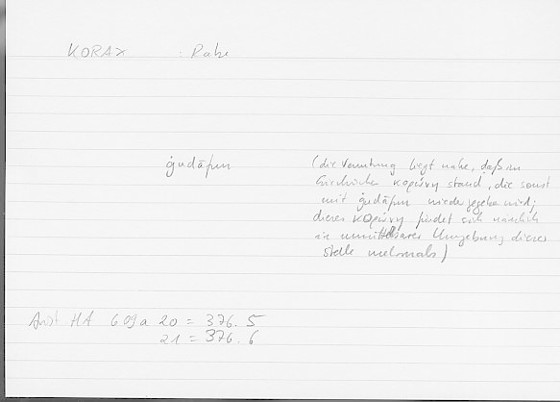 KORAX : Rabe
ġudāfun
(die Vermutung liegt nahe, daß im
Griechischen κορώνη stand, die sonst
mit ġudāfun wiedergegeben wird;
dieses κορώνη findet sich nämlich
in unmittelbarer Umgebung dieser
Stelle mehrmals)
Arist HA 609a 20 = 376.5
21 = 376.6